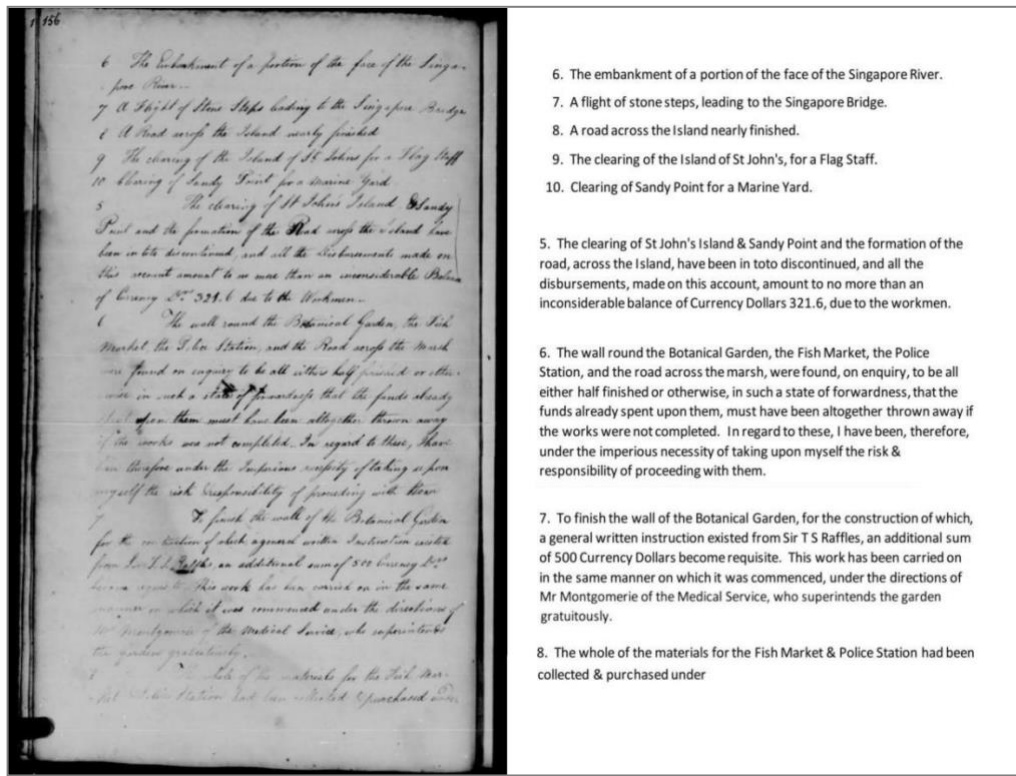 156
6 The Embankment of a portion of the face of the Singa-
pore River.
7 A Flight of Stone Steps leading to the Singapore Bridge
8 A Road across the Island nearly finished
9 The clearing of the Island of St Johns for a Flag Staff
10 Clearing of Sandy Point for a Marine Yard.
5 The clearing of St John's Island & Sandy
Point and the formation of the Road across the Island have
been in toto discontinued, and all the Disbursements made on
this account amount to no more than an inconsiderable Balance
of Currency Drs 321.6 due to the Workmen.
6 The wall round the Botanical Garden, the Fish
Market, the Police Station, and the Road across the Marsh
were found on enquiry to be all either half finished or other-
wise in such a state of forwardness that the funds already
spent upon them must have been altogether thrown away
if the works was not completed. In regard to these, I have
been therefore under the Imperious necessity of taking upon
myself the risk & responsibility of proceeding with them
7 To finish the wall of the Botanical Garden
for the construction of which a general written Instruction existed
from Sir T. S. Raffles, an additional sum of 500 Currency Drs
became requisite. This work has been carried on in the same
manner on which it was commenced under the directions of
Mr Montgomerie of the Medical Service, who superintends
the garden gratuitously.
8 The whole of the materials for the Fish Mar-
ket Police Station had been collected & purchased under
6. The embankment of a portion of the face of the Singapore River.
7. A flight of stone steps, leading to the Singapore Bridge.
8. A road across the Island nearly finished.
9. The clearing of the Island of St John's, for a Flag Staff.
10. Clearing of Sandy Point for a Marine Yard.
5. The clearing of St John's Island & Sandy Point and the formation of the
road, across the Island, have been in toto discontinued, and all the
disbursements, made on this account, amount to no more than an
inconsiderable balance of Currency Dollars 321.6, due to the workmen.
6. The wall round the Botanical Garden, the Fish Market, the Police
Station, and the road across the marsh, were found, on enquiry, to be all
either half finished or otherwise, in such a state of forwardness, that the
funds already spent upon them, must have been altogether thrown away if
the works were not completed. In regard to these, I have been, therefore,
under the imperious necessity of taking upon myself the risk &
responsibility of proceeding with them.
7. To finish the wall of the Botanical Garden, for the construction of which,
a general written instruction existed from Sir T S Raffles, an additional sum
of 500 Currency Dollars become requisite. This work has been carried on
in the same manner on which it was commenced, under the directions of
Mr Montgomerie of the Medical Service, who superintends the garden
gratuitously.
8. The whole of the materials for the Fish Market & Police Station had been
collected & purchased under